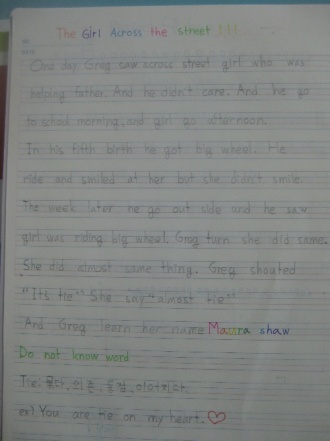 The Girl Across the street !!!
One day Greg saw across street girl who was
helping father. And he didn't care. And he go
to school morning, and girl go afternoon.
In his fifth birth he got big wheel. He
ride and smiled at her but she didn't smile.
The week later he go out side and he saw
girl was riding big wheel. Greg turn she did same.
She did almost same thing. Greg shouted
"Its tie" She say "almost tie"
And Greg learn her name Maura shaw
Do not know word
Tie: 묶다, 의존, 동점, 이어지다.
ex) You are tie on my heart. ♡